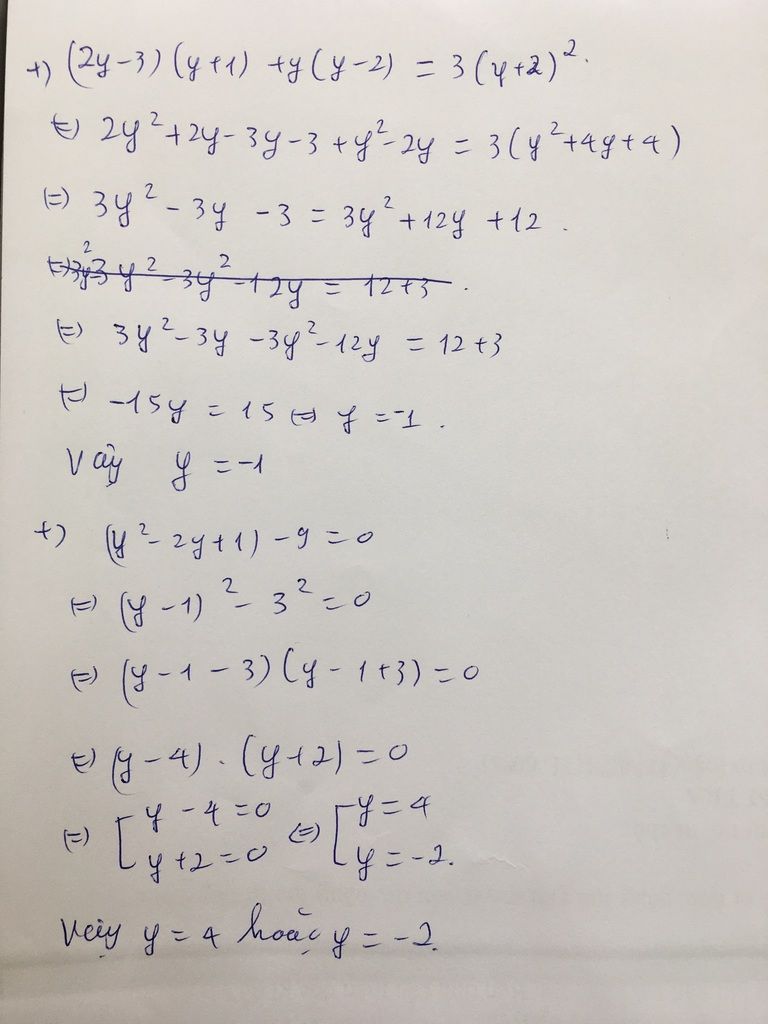 +) (2y-3)(y+1) +y(y-2) = 3(y+2)².
(=) 2y²+2y-3y-3+y²-2y = 3(y²+4y+4)
(=) 3y²-3y -3 = 3y²+12y +12.
(=) 3y²-3y -3y²-12y = 12+3
(=) -15y = 15 (=) y =-1.
Vậy y =-1
+) (y²-2y+1)-9=0
(=) (y-1)²- 3²=0
(=) (y-1-3)(y-1+3)=0
(=) (y-4).(y+2)=0
(=) [y-4=0 (=) [y=4
y+2=0 y=-2.
Vậy y=4 hoặc y=-2.